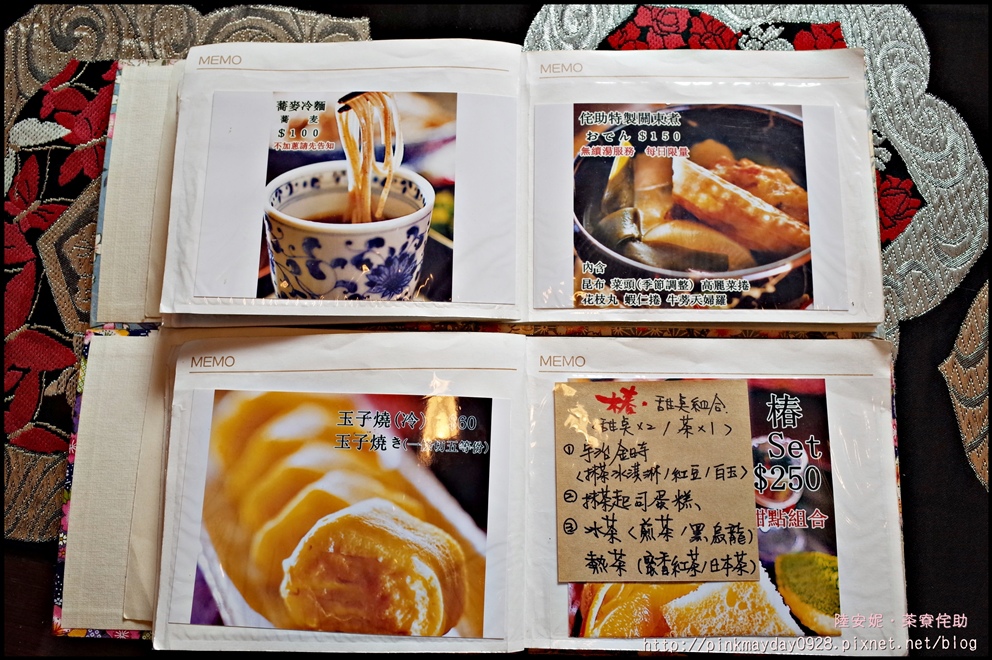 MEMO
蕎麥冷麵
蕎 麦
$100
不加蔥請先告知
MEMO
侘助特製關東煮
おでん $150
無續湯服務 每日限量
內含
昆布 菜頭(季節調整) 高麗菜捲
花枝丸 蝦仁捲 牛蒡天婦羅
MEMO
玉子燒(冷) 60
玉子燒き(一份切五等份)
MEMO
椿·甜點組合
甜点x2/茶x1>
① 牛奶金時
<抹茶冰淇淋/紅豆/白玉>
② 抹茶起司蛋糕、
③ 冰茶<煎茶/黑烏龍)
熱茶(蜜香紅茶/日本茶)
椿
Set
$250
甜點組合
陸安妮·茶寮侘助
http://pinkmayday0928.pixnet.net/blog